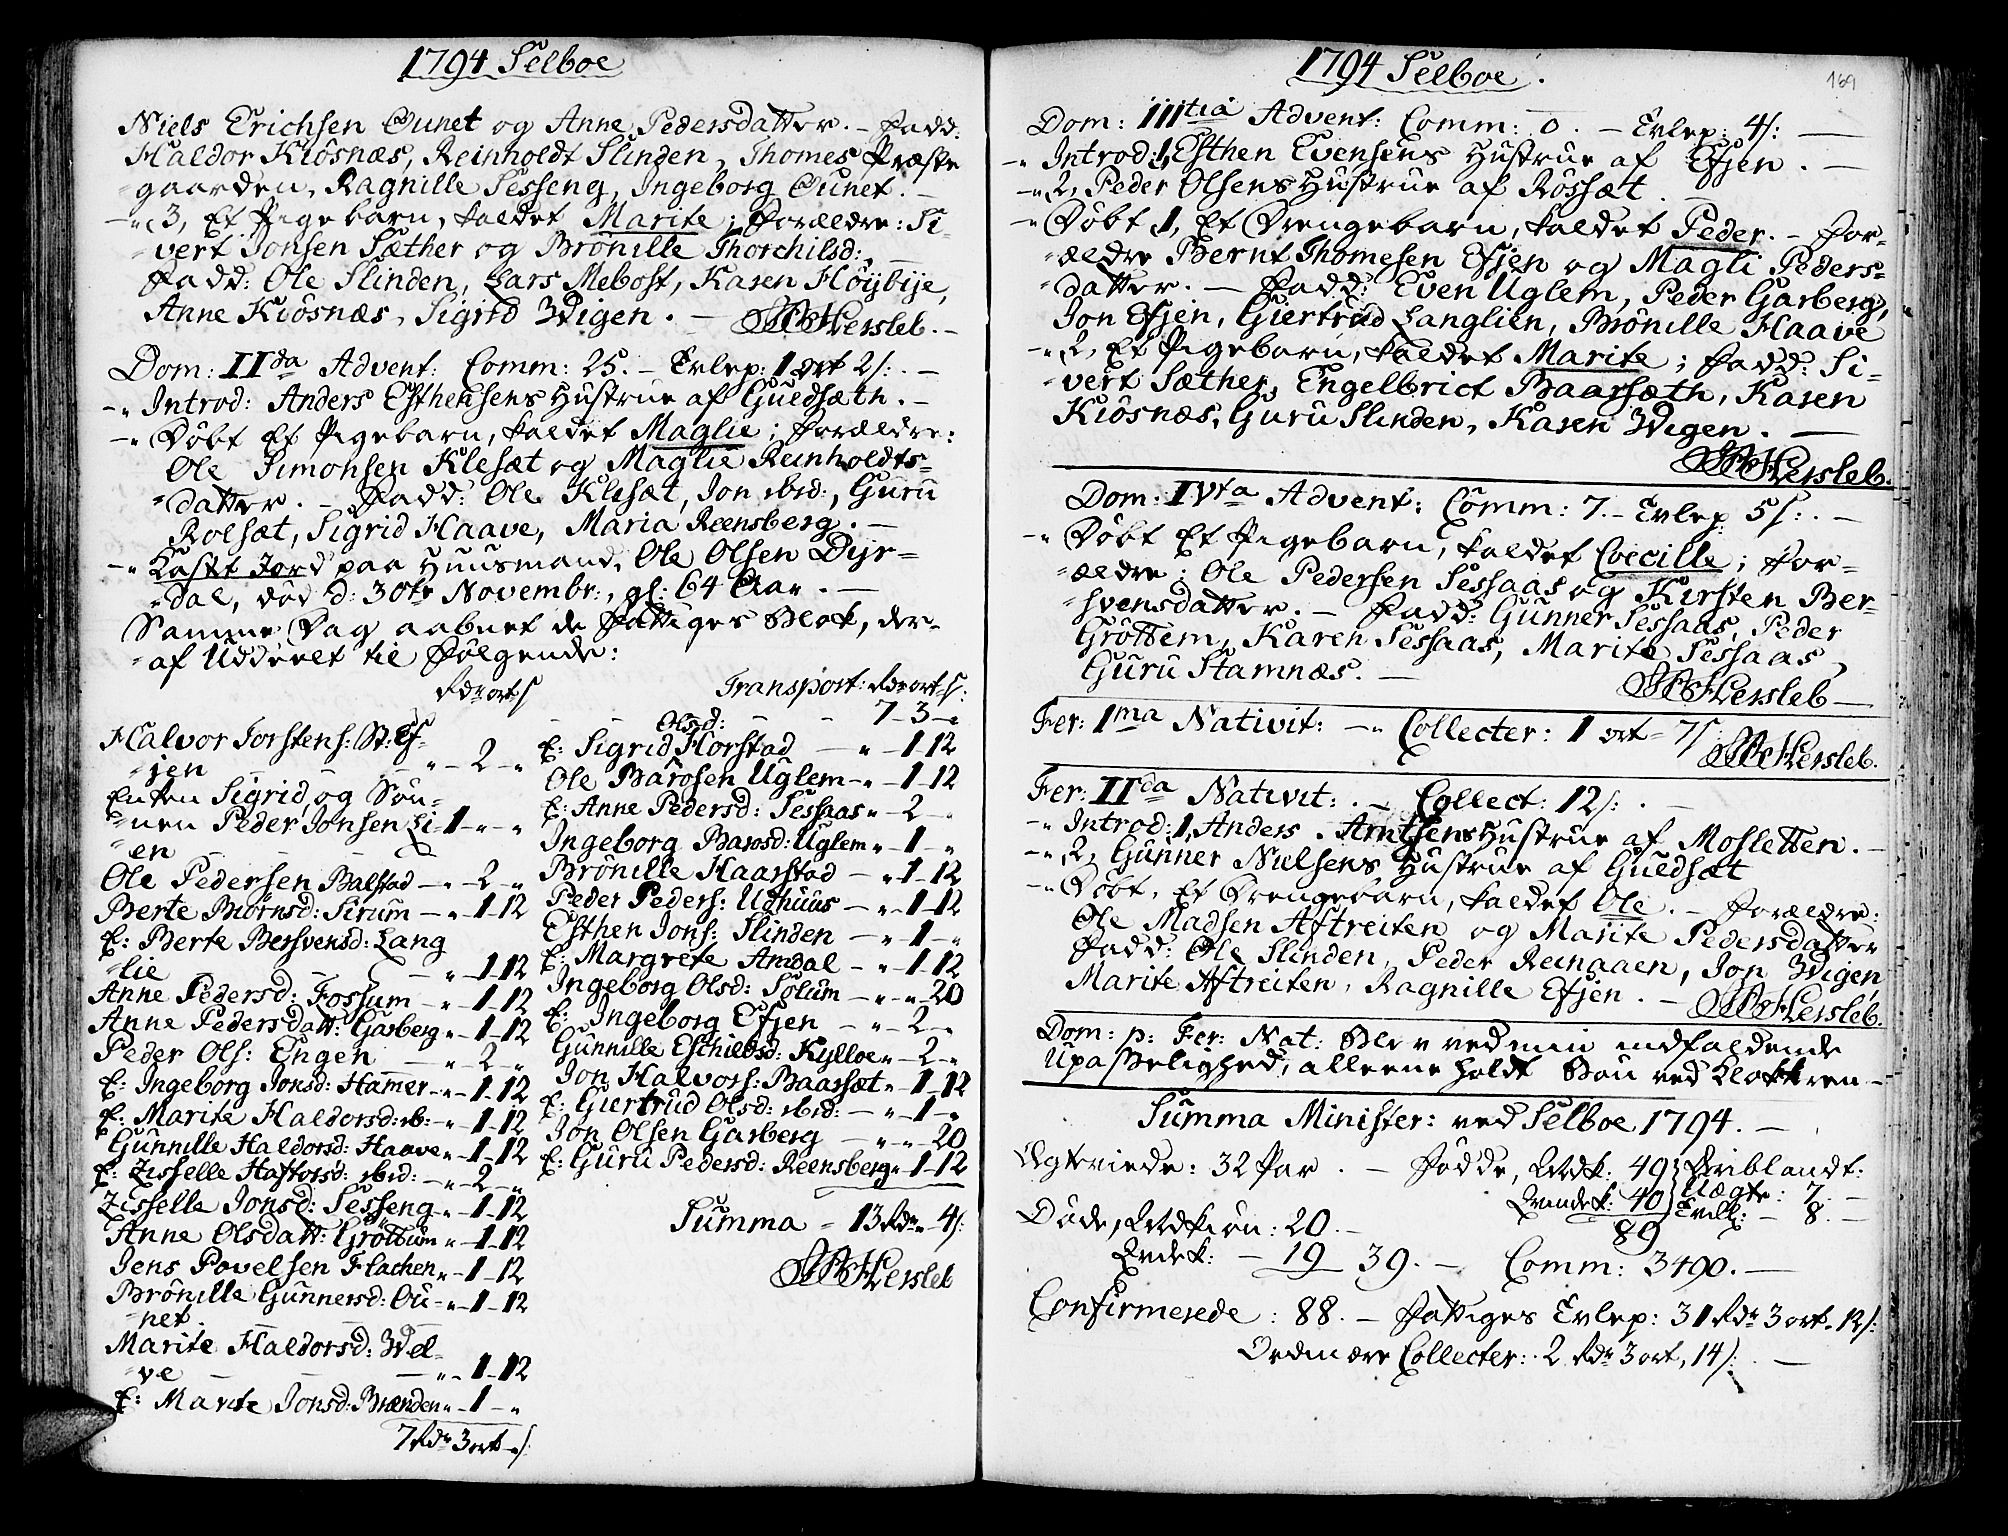 1794 Selboe
Niels Erichsen Ounet og Anne Pedersdatter. - Fadd:
Haldor Kiösnæs, Reinholdt Slinden, Thomes Præste
gaarden, Ragnille Sesseng, Ingeborg Ounet. -
-" 3, Et Pigebarn, kaldet Marite; Forældre: Si-
vert Jonsen Sæther og Brönille Thorchilsd: -
Fadd: Ole Slinden, Lars Mebost, Karen Höÿbÿe,
Anne Kiösnæs, Sigrid Wigen. - Hersleb. -
Dom: IIda Advent: Comm: 25. - Tvlep: 1 ort 2 s:. -
-" Introd: Anders Esthensens Hustrue af Guldsæth. -
-" Döbt Et Pigebarn, kaldet Maglie; Forældre:
Ole Simonsen Klesæt og Maglie Reinholdts-
datter. - Fadd: Ole Klesæt, Jon ibid:, Guru
Rolsæt, Sigrid Haave, Maria Reensberg. -
-" Kastt Jord paa Huusmand, Ole Olsen Dÿr-
dal, död d: 30te Novembr:, gl: 64 Aar. -
Samme Dag aabnet de Fattiges Blok, der-
af Uddeelt til Fölgende:
Rdr ort s
Halvor Torstens: St: Ef-
jen - " - 2 - "
Enken Sigrid og Sön-
nen Peder Jonsen Li- 1 - " - "
en
Ole Pedersen Balstad - " - 2 - "
Berte Biörnsd: Sirum - " - 1 - 12
E: Berte Bersvensd: Lang
lie - " - 1 - 12
Anne Pedersd: Fossum - " - 1 - 12
Anne Pedersdatt: Garberg " - 1 - 12
Peder Ols: Engen - " - 2 - "
E: Ingeborg Jonsd: Hamer - " - 1 - 12
E: Marite Haldorsd: ib: - " - 1 - 12
Gunnille Haldorsd: Haave " - 1 - 12
E: Zisselle Haftorsd: ibid: - " - 2 - "
Zisselle Jonsd: Sesseng " - 1 - 12
Anne Olsdatt: Gröttum " - 1 - 12
Jens Povelsen Flachen " - 1 - 12
Brönille Gunnersd: Ou- " - 1 - 12
net.
Marite Haldorsd: Wel-
ve - " - 1 - 12
E: Marite Jonsd: Brænden " - 1 - "
7 Rdr 3 ort - " s:
Transport: Rdr ort s:
7 - 3 - "
Olsd:
E: Sigrid Horstad - " - 1 - 12
Ole Barosen Uglem - " - 1 - 12
E: Anne Pedersd: Sessaas " - 2 - "
Ingeborg Barosd: Uglem " - 1 - "
Brönille Haarstad - " 1 - 12
Peder Peders: Udhuus - " - 1 - 12
Esthen Jons: Slinden - " - 1 - "
E: Margrete Amdal - " - 1 - 12
Ingeborg Olsd: Solum - " - " - 20
E: Ingeborg Efjen - " - 2 - "
Gunnille Eschilsd: Kylloe " - 2 - "
Jon Halvors: Baarsæt " - 1 - 12
E: Giertrud Olsd: ibid: - " - 1 - "
Jon Olsen Garberg - " - " - 20
E: Guru Pedersd: Reensberg " - 1 - 12
Summa - 13 Rdr " 4 s:
Hersleb
1794 Selboe.
169
Dom: IIItia Advent: Comm: 0. - Tvlep: 4 s: -
-" Introd: 1, Esthen Evensens Hustrue af Efjen. -
-" 2, Peder Olsens Hustrue af Rössæt. -
-" Döbt 1, Et Drengebarn, kaldet Peder. - For-
ældre Bernt Thomesen Efjen og Magli Peders-
datter. - Fadd: Even Uglem, Peder Garberg,
Jon Efjen, Giertrud Langlien, Brönille Haave
-" 2, Et Pigebarn, kaldet Marite; Fadd: Si-
vert Sæther, Engelbrict Baarsæth, Karen
Kiösnæs, Guru Slinden, Karen Wigen. -
Hersleb.
Dom: IVta Advent: Comm: 7. - Tvlep: 5 s:. -
-" Döbt Et Pigebarn, kaldet Coecille; For-
ældre: Ole Pedersen Sessaas og Kirsten Ber-
svensdatter. - Fadd: Gunner Sessaas, Peder
Gröttem, Karen Sessaas, Marite Sessaas,
Guru Stamnæs. - Hersleb -
Fer: 1ma Nativit: -" Collecter: 1 ort - 7 s
Hersleb.
Fer: IIda Nativit:. - Collect: 12 s:. -
-" Introd: 1, Anders Arntsens Hustrue af Mosletten. -
-" 2, Gunner Nielsens Hustrue af Guldsæt
-" Döbt, Et Drengebarn, kaldet Ole. - Forældre:
Ole Madsen Aftreiten og Marite Pedersdatter
Fadd: Ole Slinden, Peder Reinaaen, Jon Wigen,
Marite Aftreiten, Ragnille Efjen. - Hersleb.
Dom: p: Fer: Nat: Blev ved min indfaldende
Upasselighed, alleene holdt Bön ved Klokkeren -
Summa Minister: ved Selboe 1794. -
Ægteviede: 32 Par. - Födde, Mdk: 49 Iblandt:
Qvindek: 40 Uægte: 7. -
89 Tvill: - 8. -
Döde, Mdkiön: 20. -
Qvdek: - 19 39. - Comm: 3490. -
Confirmerede: 88. - Fattiges Tvlep: 31 Rdr 3 ort. 12 s:
Ordinære Collecter: 2 Rdr 3 ort, 14 s:. -